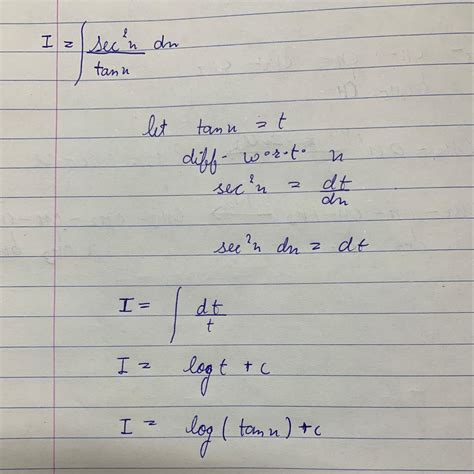 I = ∫ sec²x/tanx dx
let tanx = t
diff. w.r.t. x
sec²x = dt/dx
sec²x dx = dt
I = ∫ dt/t
I = logt + c
I = log(tanx) + c